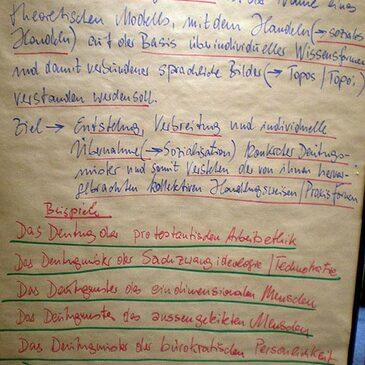 theoretischen Modells, mit dem Handeln (→ soziales
Handeln) auf der Basis überindividueller Wissensformen
und damit verbundener sprachliche Bilder (→ Topos / Topoi)
verstanden werden soll.
Ziel → Entstehung, Verbreitung und individuelle
Übernahme (→ Sozialisation) konkreter Deutungs-
muster und somit Verstehen der von ihnen hervor-
gebrachten kollektiven Handlungsweisen / Praxisformen
Beispiele
Das Deutung der protestantischen Arbeitsethik
Das Deutungsmuster der Sachzwangideologie / Technokratie
Das Deutungsmuster des eindimensionalen Menschen
Das Deutungsmuster des aussengeleiteten Menschen
Das Deutungsmuster der bürokratischen Persönlichkeit